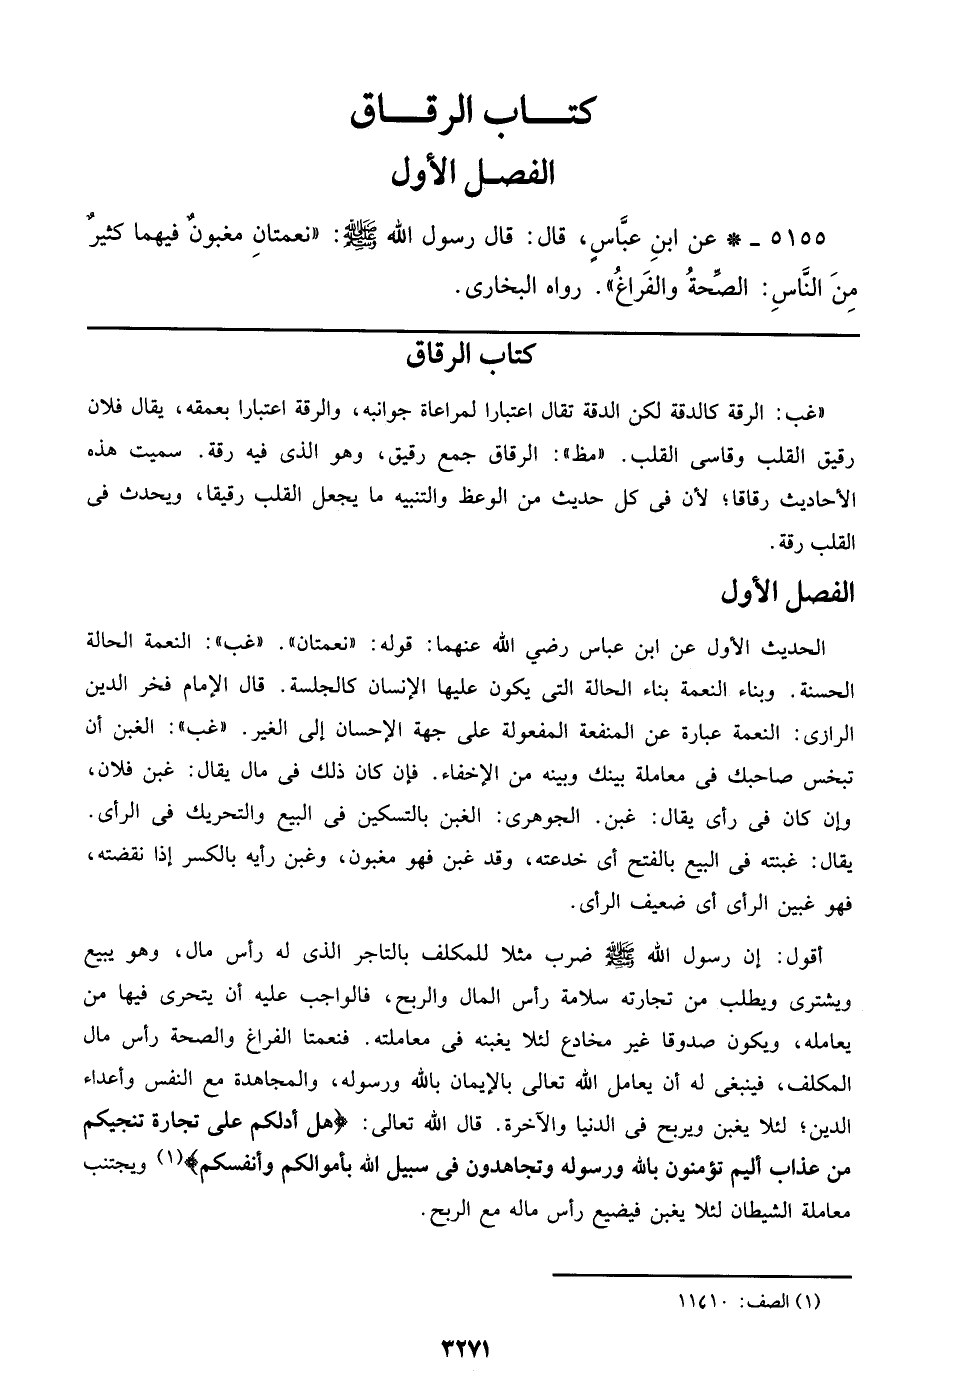 كتاب الرقاق
الفصل الأول
٥١٥٥ ـ * عن ابنِ عبَّاسٍ، قال: قال رسول الله ﷺ: «نعمتانِ مغبونٌ فيهما كثيرٌ
مِنَ النَّاسِ: الصِّحةُ والفَراغُ». رواه البخارى.
كتاب الرقاق
«غب: الرقة كالدقة لكن الدقة تقال اعتبارا لمراعاة جوانبه، والرقة اعتبارا بعمقه، يقال فلان
رقيق القلب وقاسى القلب. «مظ»: الرقاق جمع رقيق، وهو الذى فيه رقة. سميت هذه
الأحاديث رقاقا؛ لأن فى كل حديث من الوعظ والتنبيه ما يجعل القلب رقيقا، ويحدث فى
القلب رقة.
الفصل الأول
الحديث الأول عن ابن عباس رضي الله عنهما: قوله: «نعمتان». «غب»: النعمة الحالة
الحسنة. وبناء النعمة بناء الحالة التى يكون عليها الإنسان كالجلسة. قال الإمام فخر الدين
الرازى: النعمة عبارة عن المنفعة المفعولة على جهة الإحسان إلى الغير. «غب»: الغبن أن
تبخس صاحبك فى معاملة بينك وبينه من الإخفاء. فإن كان ذلك فى مال يقال: غبن فلان،
وإن كان فى رأى يقال: غبن. الجوهرى: الغبن بالتسكين فى البيع والتحريك فى الرأى.
يقال: غبنته فى البيع بالفتح أى خدعته، وقد غبن فهو مغبون، وغبن رأيه بالكسر إذا نقضته،
فهو غبين الرأى أى ضعيف الرأى.
أقول: إن رسول الله ﷺ ضرب مثلا للمكلف بالتاجر الذى له رأس مال، وهو يبيع
ويشترى ويطلب من تجارته سلامة رأس المال والربح، فالواجب عليه أن يتحرى فيها من
يعامله، ويكون صدوقا غير مخادع لئلا يغبنه فى معاملته. فنعمتا الفراغ والصحة رأس مال
المكلف، فينبغى له أن يعامل الله تعالى بالإيمان بالله ورسوله، والمجاهدة مع النفس وأعداء
الدين؛ لئلا يغبن ويربح فى الدنيا والآخرة. قال الله تعالى: ﴿هل أدلكم على تجارة تنجيكم
من عذاب أليم تؤمنون بالله ورسوله وتجاهدون فى سبيل الله بأموالكم وأنفسكم﴾(١) ويجتنب
معاملة الشيطان لئلا يغبن فيضيع رأس ماله مع الربح.
(١) الصف: ١١٤١٠
٣٢٧١